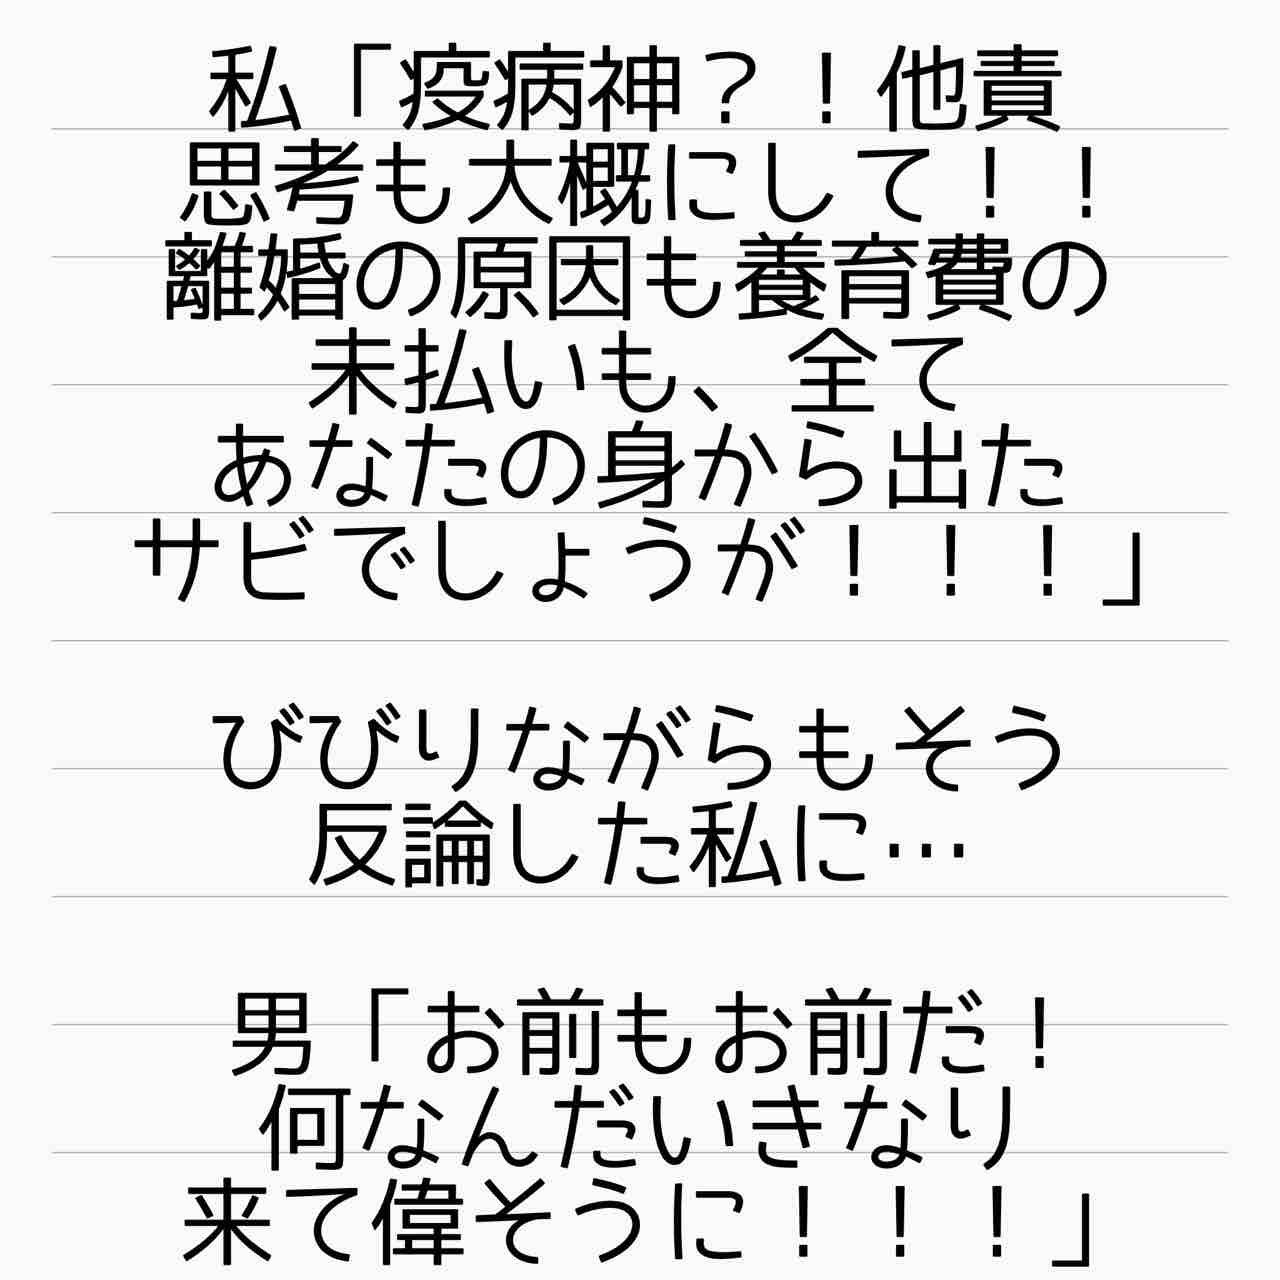 私「疫病神？！他責
思考も大概にして！！
離婚の原因も養育費の
未払いも、全て
あなたの身から出た
サビでしょうが！！！」
びびりながらもそう
反論した私に…
男「お前もお前だ！
何なんだいきなり
来て偉そうに！！！」